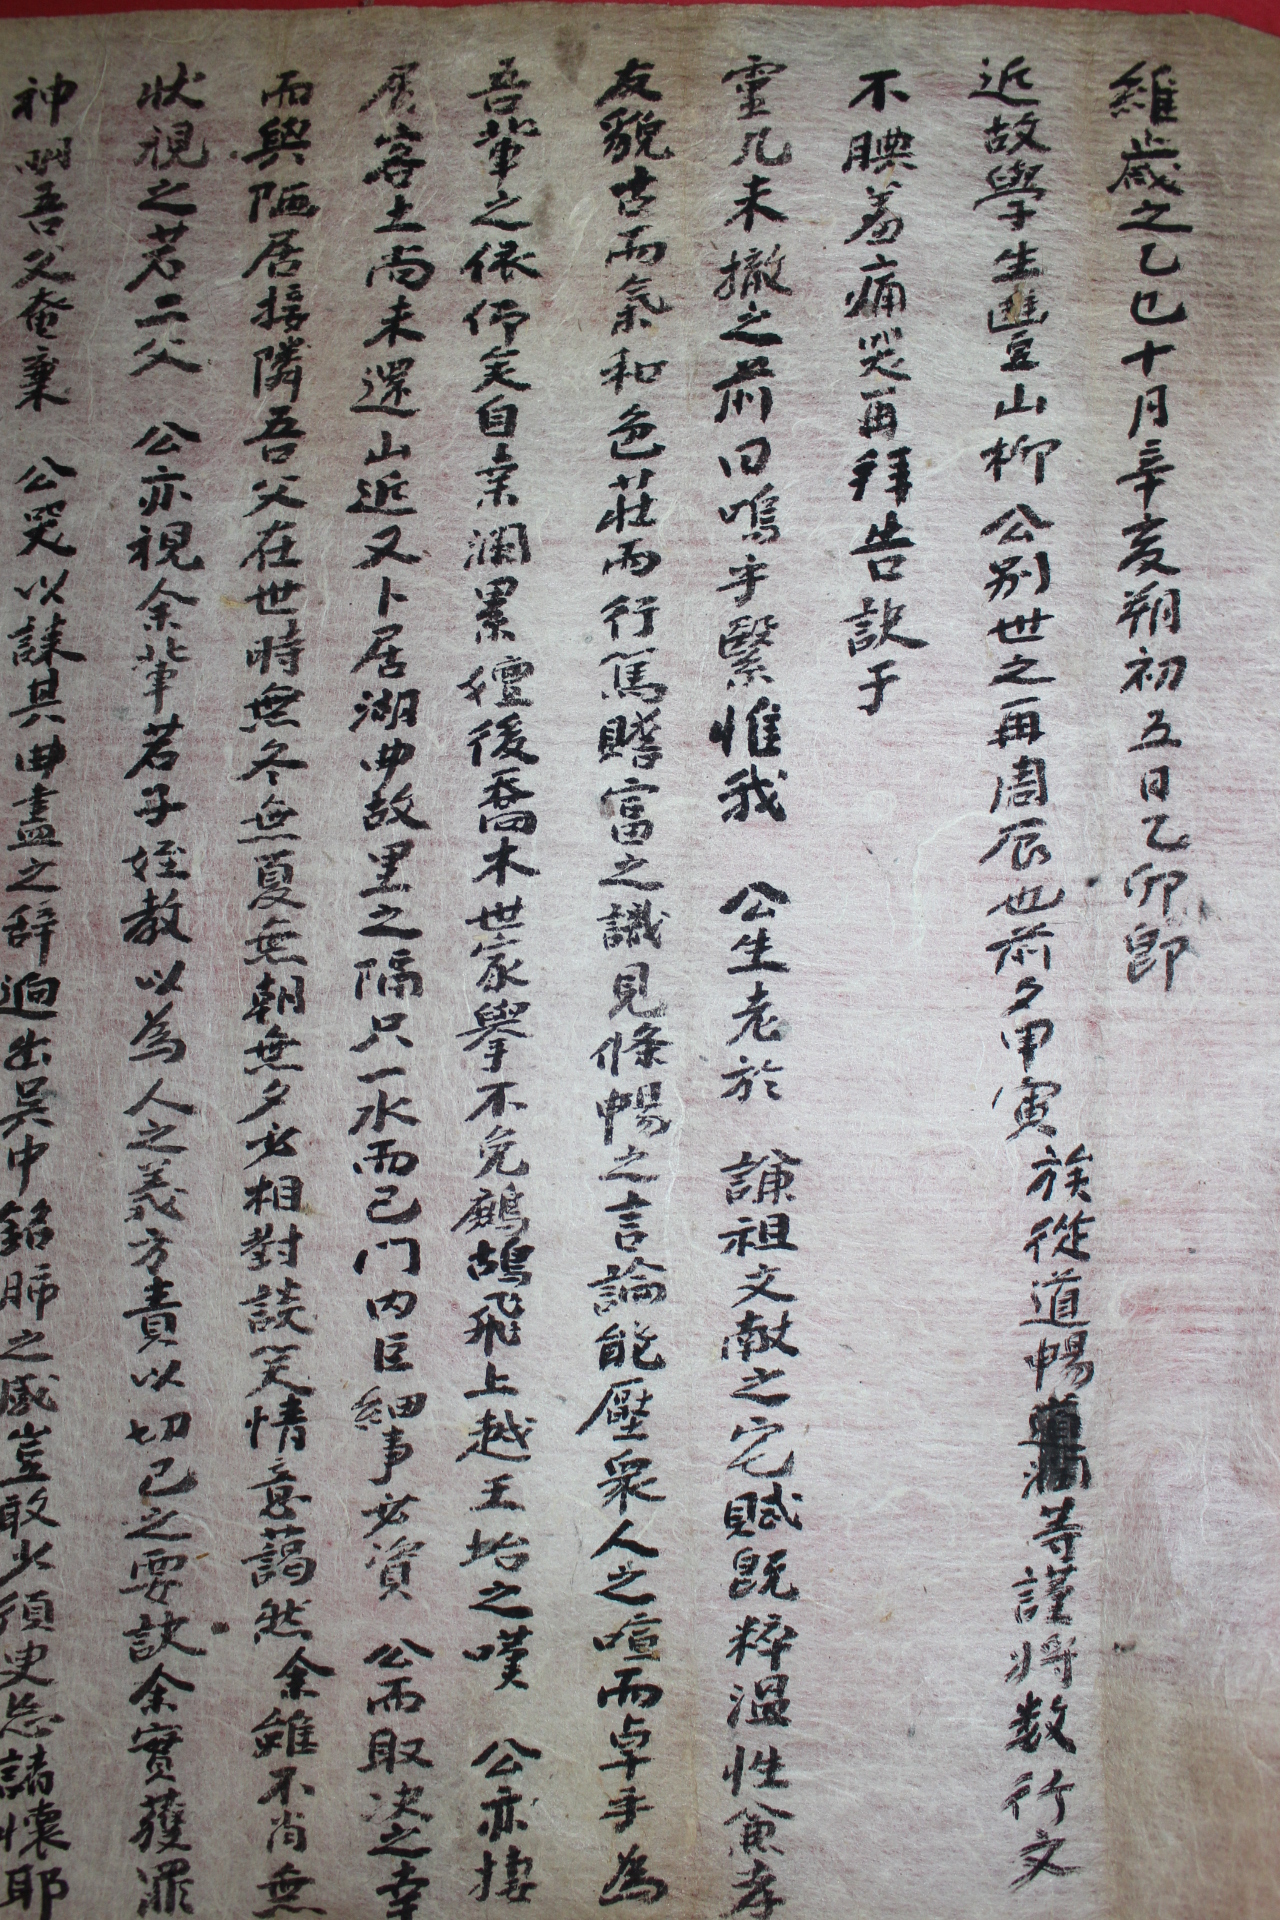 維歲之乙巳十月辛亥朔初五日乙卯即
近故學生豊山柳 公別世之再周辰也前夕甲寅族從道暢等謹將数行文
不腆羞痛哭再拜告訣于
靈几未撤之前曰嗚乎繄惟我 公生老於 謙祖文献之宅賦既粹溫性兼孝
友貌古而氣和色莊而行篤贍富之識見條暢之言論能壓衆人之喧而卓乎為
吾輩之依仰矣自桑瀾累後喬木世家擧不免鷓鴣飛上越王坮之嘆 公亦捿
居客土尚未還山近又卜居湖曲故里之隔只一水而已门内巨細事必資 公而取决之幸
而與陋居接隣吾父在世時無冬無夏無朝無夕必相對談笑情意藹然余雖不肖無
状視之若二父 公亦視余輩若子姪教以為人之義方責以切已之要訣余實獲罪
神明吾父奄棄 公哭以誄其曲盡之辞逈出吴中銘肺之感豈敢少須臾忘諸懷耶